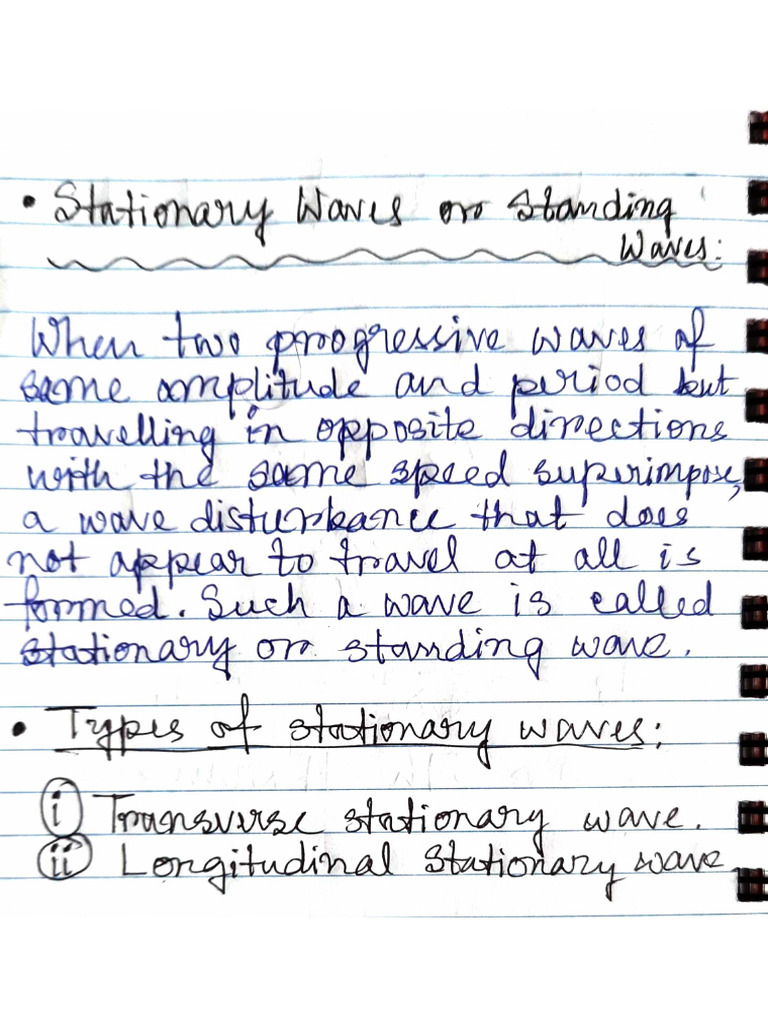 • Stationary Waves or Standing
Waves:
When two progressive waves of
same amplitude and period but
travelling in opposite directions
with the same speed superimpose,
a wave disturbance that does
not appear to travel at all is
formed. Such a wave is called
stationary or standing wave.
• Types of stationary waves:
(i) Transverse stationary wave.
(ii) Longitudinal Stationary wave.